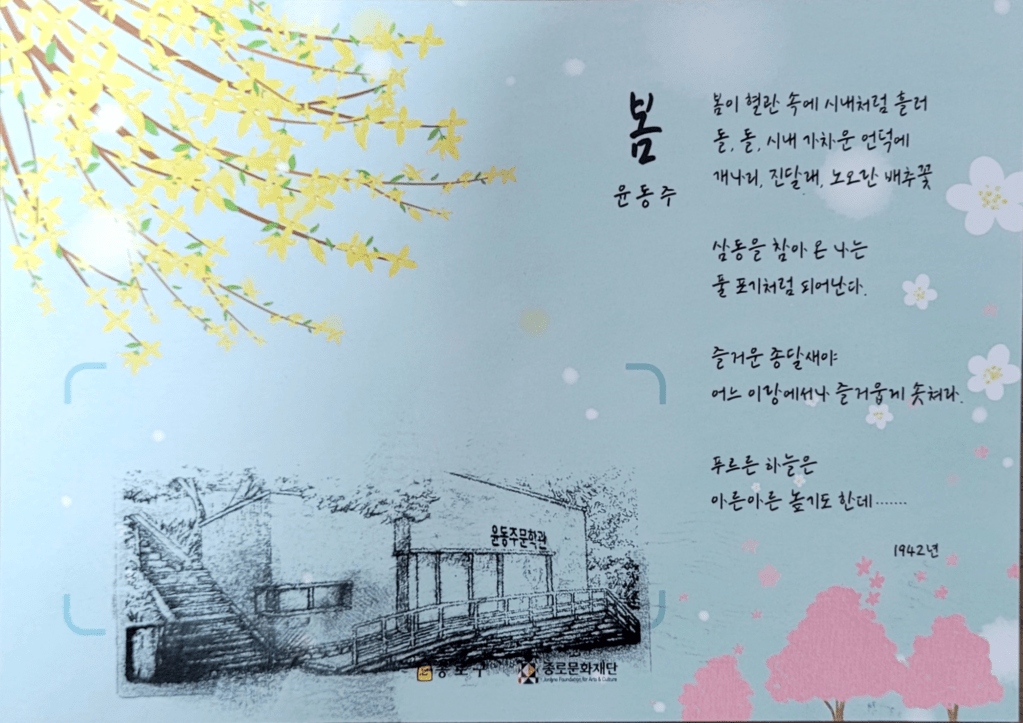 봄
윤동주
봄이 혈관 속에 시내처럼 흘러
돌, 돌, 시내 가차운 언덕에
개나리, 진달래, 노오란 배추꽃
삼동을 참아 온 나는
풀 포기처럼 피어난다.
즐거운 종달새야
어느 이랑에서나 즐거웁게 솟쳐라.
푸르른 하늘은
아른아른 높기도 한데……
1942년
윤동주문학관
종로구
종로문화재단
Jongno Foundation for Arts & Culture